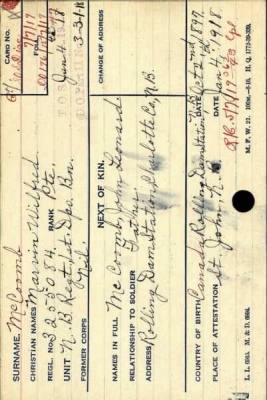 SURNAME. McCoomb
CHRISTIAN NAMES Marvin Wilfred
REGL. No. 3255084. RANK Pte.
UNIT N. B. Regt. 1st. Dpo. Bn.
FORMER CORPS Nil.
CARD NO.
FOLIO
Jan 4. 18
3-31-18
NEXT OF KIN.
CHANGE OF ADDRESS
NAMES IN FULL McCoomb, John Leonard
RELATIONSHIP TO SOLDIER Father
ADDRESS Rolling Dam Station, Charlotte Co, N.B.
COUNTRY OF BIRTH Canada Rolling Dam Station N.B. DATE Oct 2nd 1897.
PLACE OF ATTESTATION St. John, N.B. DATE Jan 4, 1918.
L. L. M. & D.
M. F. W. 22.